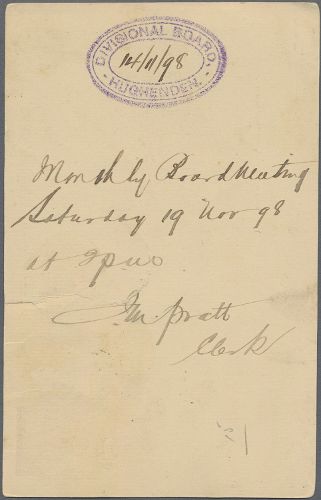 DIVISIONAL BOARD,
14/11/98
HUGHENDEN.
Monthly Board Meeting
Saturday 19 Nov 98
at
Pratt
Clerk